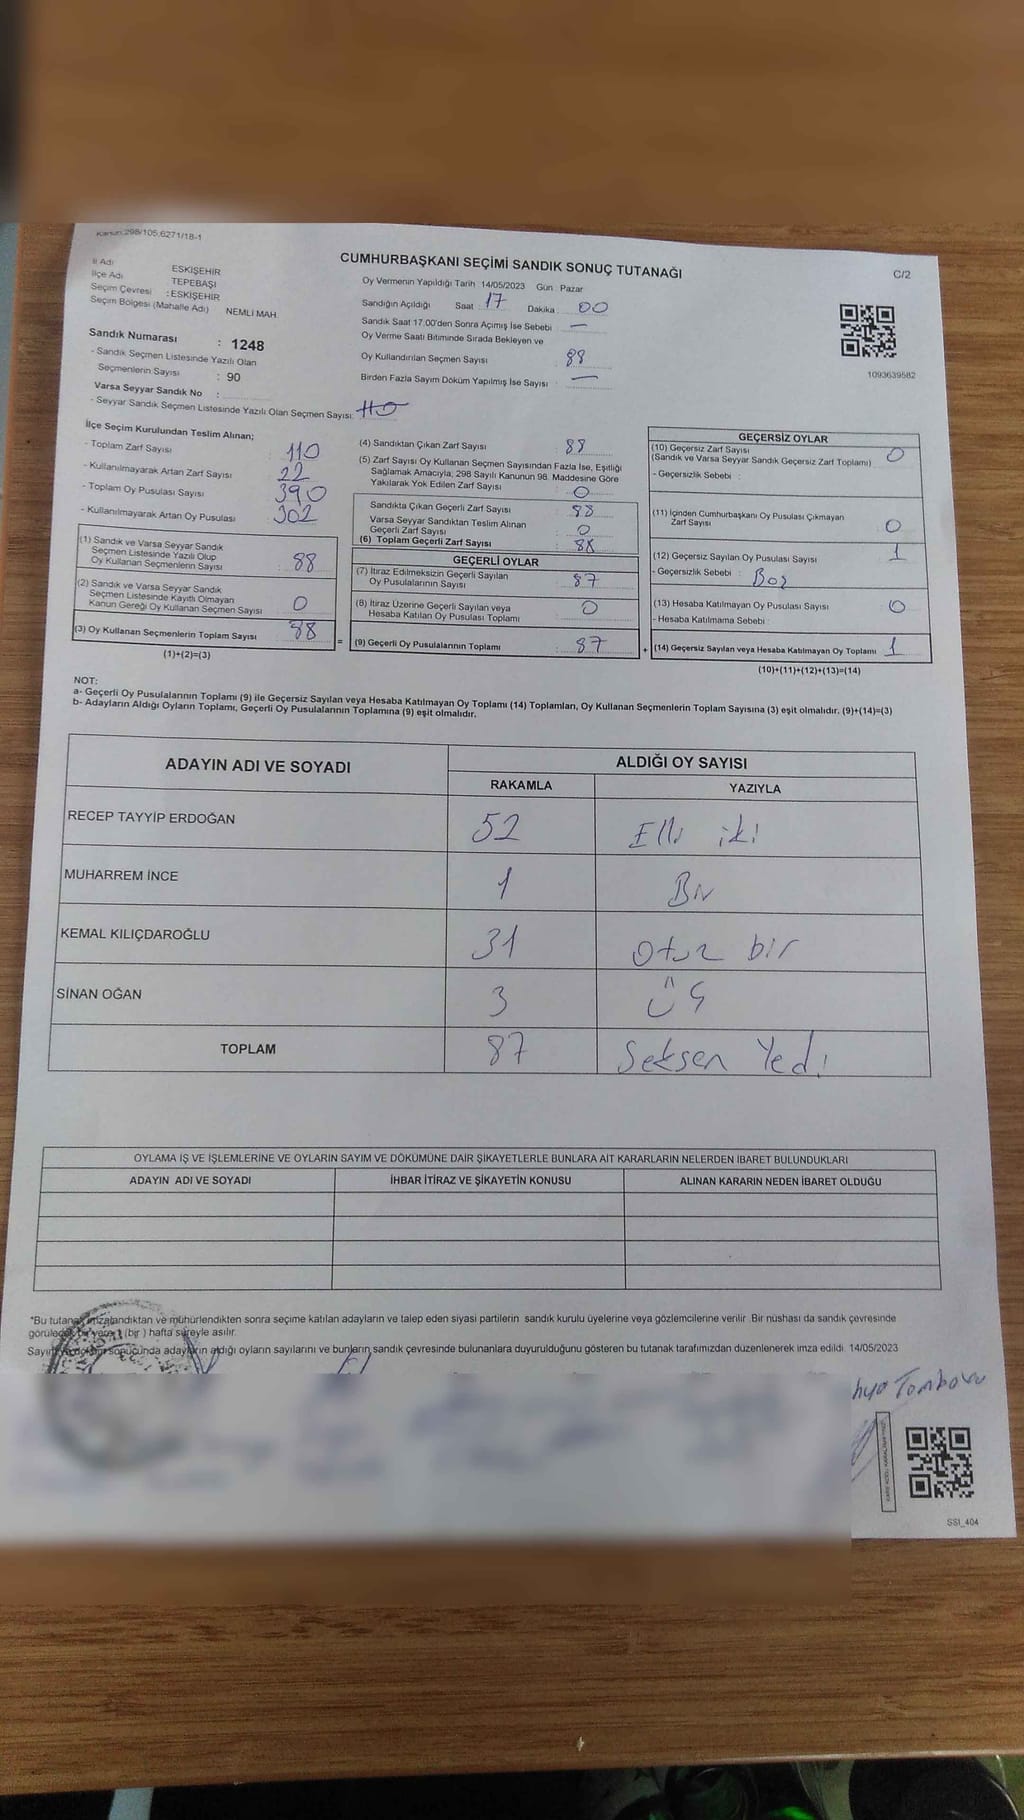 Kanun:298/105,6271/18-1
CUMHURBAŞKANI SEÇİMİ SANDIK SONUÇ TUTANAĞI
C/2
İl Adı ESKİŞEHİR
İlçe Adı TEPEBAŞI
Seçim Çevresi : ESKİŞEHİR
Seçim Bölgesi (Mahalle Adı) NEMLİ MAH.
Oy Vermenin Yapıldığı Tarih 14/05/2023 Gün : Pazar
Sandığın Açıldığı Saat : 17 Dakika : 00
Sandık Saat 17.00'den Sonra Açımış İse Sebebi : —
Oy Verme Saati Bitiminde Sırada Bekleyen ve
Oy Kullandırılan Seçmen Sayısı : 88
Birden Fazla Sayım Döküm Yapılmış İse Sayısı : —
1093639582
Sandık Numarası : 1248
- Sandık Seçmen Listesinde Yazılı Olan
Seçmenlerin Sayısı : 90
Varsa Seyyar Sandık No :
- Seyyar Sandık Seçmen Listesinde Yazılı Olan Seçmen Sayısı:
İlçe Seçim Kurulundan Teslim Alınan;
- Toplam Zarf Sayısı : 110
- Kullanılmayarak Artan Zarf Sayısı : 22
- Toplam Oy Pusulası Sayısı : 390
- Kullanılmayarak Artan Oy Pusulası : 302
(1) Sandık ve Varsa Seyyar Sandık
Seçmen Listesinde Yazılı Olup
Oy Kullanan Seçmenlerin Sayısı : 88
(2) Sandık ve Varsa Seyyar Sandık
Seçmen Listesinde Kayıtlı Olmayan
Kanun Gereği Oy Kullanan Seçmen Sayısı : 0
(3) Oy Kullanan Seçmenlerin Toplam Sayısı : 88
(1)+(2)=(3)
(4) Sandıktan Çıkan Zarf Sayısı : 88
(5) Zarf Sayısı Oy Kullanan Seçmen Sayısından Fazla İse, Eşitliği
Sağlamak Amacıyla, 298 Sayılı Kanunun 98. Maddesine Göre
Yakılarak Yok Edilen Zarf Sayısı : 0
Sandıkta Çıkan Geçerli Zarf Sayısı : 88
Varsa Seyyar Sandıktan Teslim Alınan
Geçerli Zarf Sayısı : 0
(6) Toplam Geçerli Zarf Sayısı : 88
GEÇERLİ OYLAR
(7) İtiraz Edilmeksizin Geçerli Sayılan
Oy Pusulalarının Sayısı : 87
(8) İtiraz Üzerine Geçerli Sayılan veya
Hesaba Katılan Oy Pusulası Toplamı : 0
= (9) Geçerli Oy Pusulalarının Toplamı : 87
GEÇERSİZ OYLAR
(10) Geçersiz Zarf Sayısı
(Sandık ve Varsa Seyyar Sandık Geçersiz Zarf Toplamı) : 0
- Geçersizlik Sebebi :
(11) İçinden Cumhurbaşkanı Oy Pusulası Çıkmayan
Zarf Sayısı : 0
(12) Geçersiz Sayılan Oy Pusulası Sayısı : 1
- Geçersizlik Sebebi : Boş
(13) Hesaba Katılmayan Oy Pusulası Sayısı : 0
- Hesaba Katılmama Sebebi :
+ (14) Geçersiz Sayılan veya Hesaba Katılmayan Oy Toplamı : 1
(10)+(11)+(12)+(13)=(14)
NOT:
a- Geçerli Oy Pusulalarının Toplamı (9) ile Geçersiz Sayılan veya Hesaba Katılmayan Oy Toplamı (14) Toplamları, Oy Kullanan Seçmenlerin Toplam Sayısına (3) eşit olmalıdır. (9)+(14)=(3)
b- Adayların Aldığı Oyların Toplamı, Geçerli Oy Pusulalarının Toplamına (9) eşit olmalıdır.
ADAYIN ADI VE SOYADI ALDIĞI OY SAYISI
RAKAMLA YAZIYLA
RECEP TAYYİP ERDOĞAN 52 Elli iki
MUHARREM İNCE 1 Bir
KEMAL KILIÇDAROĞLU 31 Otuz bir
SİNAN OĞAN 3 Üç
TOPLAM 87 Seksen Yedi
OYLAMA İŞ VE İŞLEMLERİNE VE OYLARIN SAYIM VE DÖKÜMÜNE DAİR ŞİKAYETLERLE BUNLARA AİT KARARLARIN NELERDEN İBARET BULUNDUKLARI
ADAYIN ADI VE SOYADI İHBAR İTİRAZ VE ŞİKAYETİN KONUSU ALINAN KARARIN NEDEN İBARET OLDUĞU
*Bu tutanak imzalandıktan ve mühürlendikten sonra seçime katılan adayların ve talep eden siyasi partilerin sandık kurulu üyelerine veya gözlemcilerine verilir. Bir nüshası da sandık çevresinde
görülecek bir yere 1 (bir) hafta süreyle asılır.
Sayım ve döküm sonucunda adayların aldığı oyların sayılarını ve bunların sandık çevresinde bulunanlara duyurulduğunu gösteren bu tutanak tarafımızdan düzenlenerek imza edildi. 14/05/2023
SSI_404